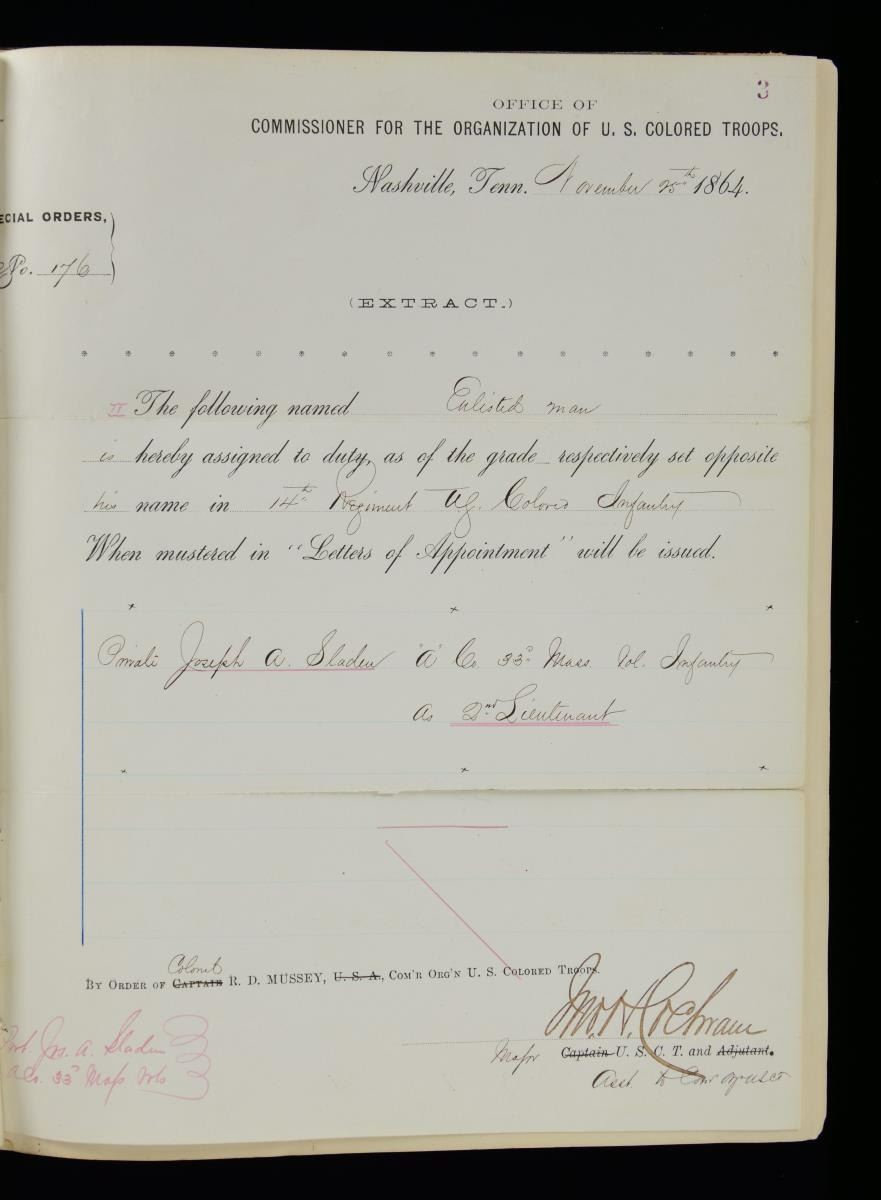 3
OFFICE OF
COMMISSIONER FOR THE ORGANIZATION OF U. S. COLORED TROOPS.
Nashville, Tenn. November 25th 1864.
ECIAL ORDERS,
No. 176
(EXTRACT.)
II The following named Enlisted man
is hereby assigned to duty, as of the grade respectively set opposite
his name in 14th Regiment U.S. Colored Infantry
When mustered in "Letters of Appointment" will be issued.
Private Joseph A. Sladen "A" Co. 33d Mass. Vol. Infantry
As 2nd Lieutenant
Colonel
BY ORDER OF CAPTAIN R. D. MUSSEY, U. S. A., COM'R ORG'N U. S. COLORED TROOPS.
Jno. H. Cochrane
Major Captain U. S. C. T. and Adjutant.
Asst. to Com'r Org USCT
Pvt. Jos. A. Sladen
A Co. 33d Mass Vols